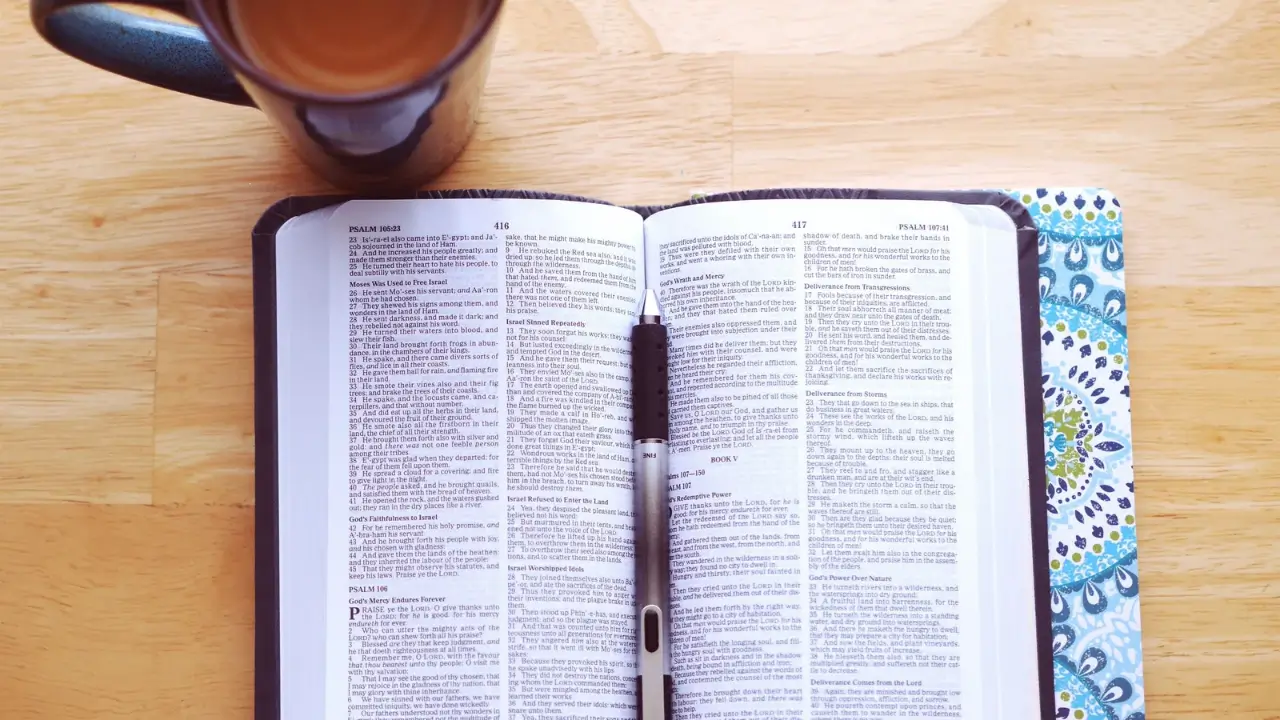 PSALM 105:23
416
23 Is'-ra-el also came into E'-gypt; and Ja'-
cob sojourned in the land of Ham.
24 And he increased his people greatly; and
made them stronger than their enemies.
25 He turned their heart to hate his people, to
deal subtilly with his servants.
Moses Was Used to Free Israel
26 He sent Mo'-ses his servant; and Aa'-ron
whom he had chosen.
27 They shewed his signs among them, and
wonders in the land of Ham.
28 He sent darkness, and made it dark; and
they rebelled not against his word.
29 He turned their waters into blood, and
slew their fish.
30 Their land brought forth frogs in abun-
dance, in the chambers of their kings.
31 He spake, and there came divers sorts of
flies, and lice in all their coasts.
32 He gave them hail for rain, and flaming fire
in their land.
33 He smote their vines also and their fig
trees; and brake the trees of their coasts.
34 He spake, and the locusts came, and ca-
terpillers, and that without number,
35 And did eat up all the herbs in their land,
and devoured the fruit of their ground.
36 He smote also all the firstborn in their
land, the chief of all their strength.
37 He brought them forth also with silver and
gold: and there was not one feeble person
among their tribes.
38 E'-gypt was glad when they departed: for
the fear of them fell upon them.
39 He spread a cloud for a covering; and fire
to give light in the night.
40 The people asked, and he brought quails,
and satisfied them with the bread of heaven.
41 He opened the rock, and the waters gushed
out; they ran in the dry places like a river.
God's Faithfulness to Israel
42 For he remembered his holy promise, and
A'-bra-ham his servant.
43 And he brought forth his people with joy,
and his chosen with gladness:
44 And gave them the lands of the heathen:
and they inherited the labour of the people;
45 That they might observe his statutes, and
keep his laws. Praise ye the LORD.
PSALM 106
God's Mercy Endures Forever
PRAISE ye the LORD. O give thanks unto
the LORD; for he is good: for his mercy
endureth for ever.
2 Who can utter the mighty acts of the
LORD? who can shew forth all his praise?
3 Blessed are they that keep judgment, and
he that doeth righteousness at all times.
4 Remember me, O LORD, with the favour
that thou bearest unto thy people: O visit me
with thy salvation;
5 That I may see the good of thy chosen, that
I may rejoice in the gladness of thy nation, that
I may glory with thine inheritance.
6 We have sinned with our fathers, we have
committed iniquity, we have done wickedly.
7 Our fathers understood not thy wonders in
sake, that he might make his mighty power
be known.
9 He rebuked the Red sea also, and it was
dried up: so he led them through the depths, as
through the wilderness.
10 And he saved them from the hand of him
that hated them, and redeemed them from the
hand of the enemy.
11 And the waters covered their enemies:
there was not one of them left.
12 Then believed they his words; they sang
his praise.
Israel Sinned Repeatedly
13 They soon forgat his works; they waited
not for his counsel:
14 But lusted exceedingly in the wilderness,
and tempted God in the desert.
15 And he gave them their request; but sent
leanness into their soul.
16 They envied Mo'-ses also in the camp, and
Aa'-ron the saint of the LORD.
17 The earth opened and swallowed up
18 And a fire was kindled in their company;
the flame burned up the wicked.
19 They made a calf in Ho'-reb, and wor-
shipped the molten image.
20 Thus they changed their glory into the si-
militude of an ox that eateth grass.
21 They forgat God their saviour, which had
done great things in E'-gypt;
22 Wondrous works in the land of Ham, and
terrible things by the Red sea.
23 Therefore he said that he would destroy
them, had not Mo'-ses his chosen stood before
him in the breach, to turn away his wrath, lest
he should destroy them.
Israel Refused to Enter the Land
24 Yea, they despised the pleasant land, they
believed not his word:
25 But murmured in their tents, and heark-
ened not unto the voice of the LORD.
26 Therefore he lifted up his hand against
them, to overthrow them in the wilderness:
27 To overthrow their seed also among the
nations, and to scatter them in the lands.
Israel Worshipped Idols
28 They joined themselves also unto Ba'-al-
pe'-or, and ate the sacrifices of the dead.
29 Thus they provoked him to anger with
their inventions: and the plague brake in upon
them.
30 Then stood up Phin'-e-has, and executed
judgment: and so the plague was stayed.
31 And that was counted unto him for righ-
teousness unto all generations for evermore.
32 They angered him also at the waters of
strife, so that it went ill with Mo'-ses for their
sakes:
33 Because they provoked his spirit, so that
he spake unadvisedly with his lips.
34 They did not destroy the nations, concern-
ing whom the LORD commanded them:
35 But were mingled among the heathen, and
learned their works.
36 And they served their idols: which were a
snare unto them.
37 Yea, they sacrificed their sons
FINE
417
PSALM 107:41
they sacrificed unto the idols of Ca'-na-an: and
the land was polluted with blood.
39 Thus were they defiled with their own
works, and went a whoring with their own in-
ventions.
God's Wrath and Mercy
Therefore was the wrath of the LORD kin-
dled against his people, insomuch that he ab-
horred his own inheritance.
And he gave them into the hand of the hea-
then; and they that hated them ruled over
Their enemies also oppressed them, and
were brought into subjection under their
Many times did he deliver them; but they
provoked him with their counsel, and were
brought low for their iniquity.
Nevertheless he regarded their affliction,
when he heard their cry:
And he remembered for them his cov-
enant, and repented according to the multitude
of his mercies.
He made them also to be pitied of all those
that carried them captives.
Save us, O LORD our God, and gather us
from among the heathen, to give thanks unto
thy holy name, and to triumph in thy praise.
Blessed be the LORD God of Is'-ra-el from
everlasting to everlasting: and let all the people
say, A'-men. Praise ye the LORD.
BOOK V
Psalms 107—150
PSALM 107
God's Redemptive Power
O GIVE thanks unto the LORD, for he is
good: for his mercy endureth for ever.
Let the redeemed of the LORD say so,
whom he hath redeemed from the hand of the
enemy;
And gathered them out of the lands, from
the east, and from the west, from the north, and
from the south.
They wandered in the wilderness in a soli-
tary way; they found no city to dwell in.
Hungry and thirsty, their soul fainted in
them.
Then they cried unto the LORD in their
trouble, and he delivered them out of their dis-
tresses.
And he led them forth by the right way,
that they might go to a city of habitation.
Oh that men would praise the LORD for his
goodness, and for his wonderful works to the
children of men!
For he satisfieth the longing soul, and fill-
eth the hungry soul with goodness.
Such as sit in darkness and in the shadow
of death, being bound in affliction and iron;
Because they rebelled against the words of
God, and contemned the counsel of the most
High:
Therefore he brought down their heart
with labour; they fell down, and there was
none to help.
Then they cried unto the LORD in their
shadow of death, and brake their bands in
sunder.
15 Oh that men would praise the LORD for his
goodness, and for his wonderful works to the
children of men!
16 For he hath broken the gates of brass, and
cut the bars of iron in sunder.
Deliverance from Transgressions
17 Fools because of their transgression, and
because of their iniquities, are afflicted.
18 Their soul abhorreth all manner of meat;
and they draw near unto the gates of death.
19 Then they cry unto the LORD in their trou-
ble, and he saveth them out of their distresses.
20 He sent his word, and healed them, and de-
livered them from their destructions.
21 Oh that men would praise the LORD for his
goodness, and for his wonderful works to the
children of men!
22 And let them sacrifice the sacrifices of
thanksgiving, and declare his works with re-
joicing.
Deliverance from Storms
23 They that go down to the sea in ships, that
do business in great waters;
24 These see the works of the LORD, and his
wonders in the deep.
25 For he commandeth, and raiseth the
stormy wind, which lifteth up the waves
thereof.
26 They mount up to the heaven, they go
down again to the depths: their soul is melted
because of trouble.
27 They reel to and fro, and stagger like a
drunken man, and are at their wit's end.
28 Then they cry unto the LORD in their trou-
ble, and he bringeth them out of their dis-
tresses.
29 He maketh the storm a calm, so that the
waves thereof are still.
30 Then are they glad because they be quiet;
so he bringeth them unto their desired haven.
31 Oh that men would praise the LORD for his
goodness, and for his wonderful works to the
children of men!
32 Let them exalt him also in the congrega-
tion of the people, and praise him in the assem-
bly of the elders.
God's Power Over Nature
33 He turneth rivers into a wilderness, and
the watersprings into dry ground;
34 A fruitful land into barrenness, for the
wickedness of them that dwell therein.
35 He turneth the wilderness into a standing
water, and dry ground into watersprings.
36 And there he maketh the hungry to dwell,
that they may prepare a city for habitation;
37 And sow the fields, and plant vineyards,
which may yield fruits of increase.
38 He blesseth them also, so that they are
multiplied greatly; and suffereth not their cat-
tle to decrease.
Deliverance Comes from the Lord
39 Again, they are minished and brought low
through oppression, affliction, and sorrow.
40 He poureth contempt upon princes, and
causeth them to wander in the wilderness,